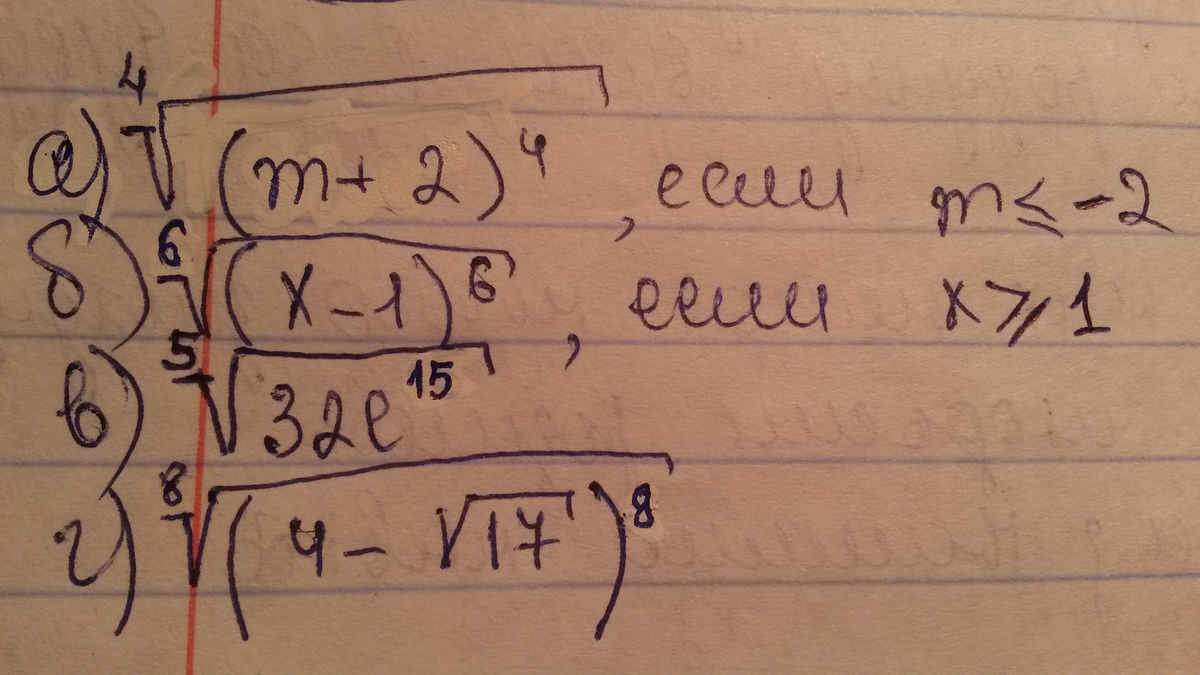 а) ⁴√(m + 2)⁴, если m ≤ -2
б) ⁶√(x - 1)⁶, если x ≥ 1
в) ⁵√32e¹⁵
г) ⁸√(4 - √17)⁸